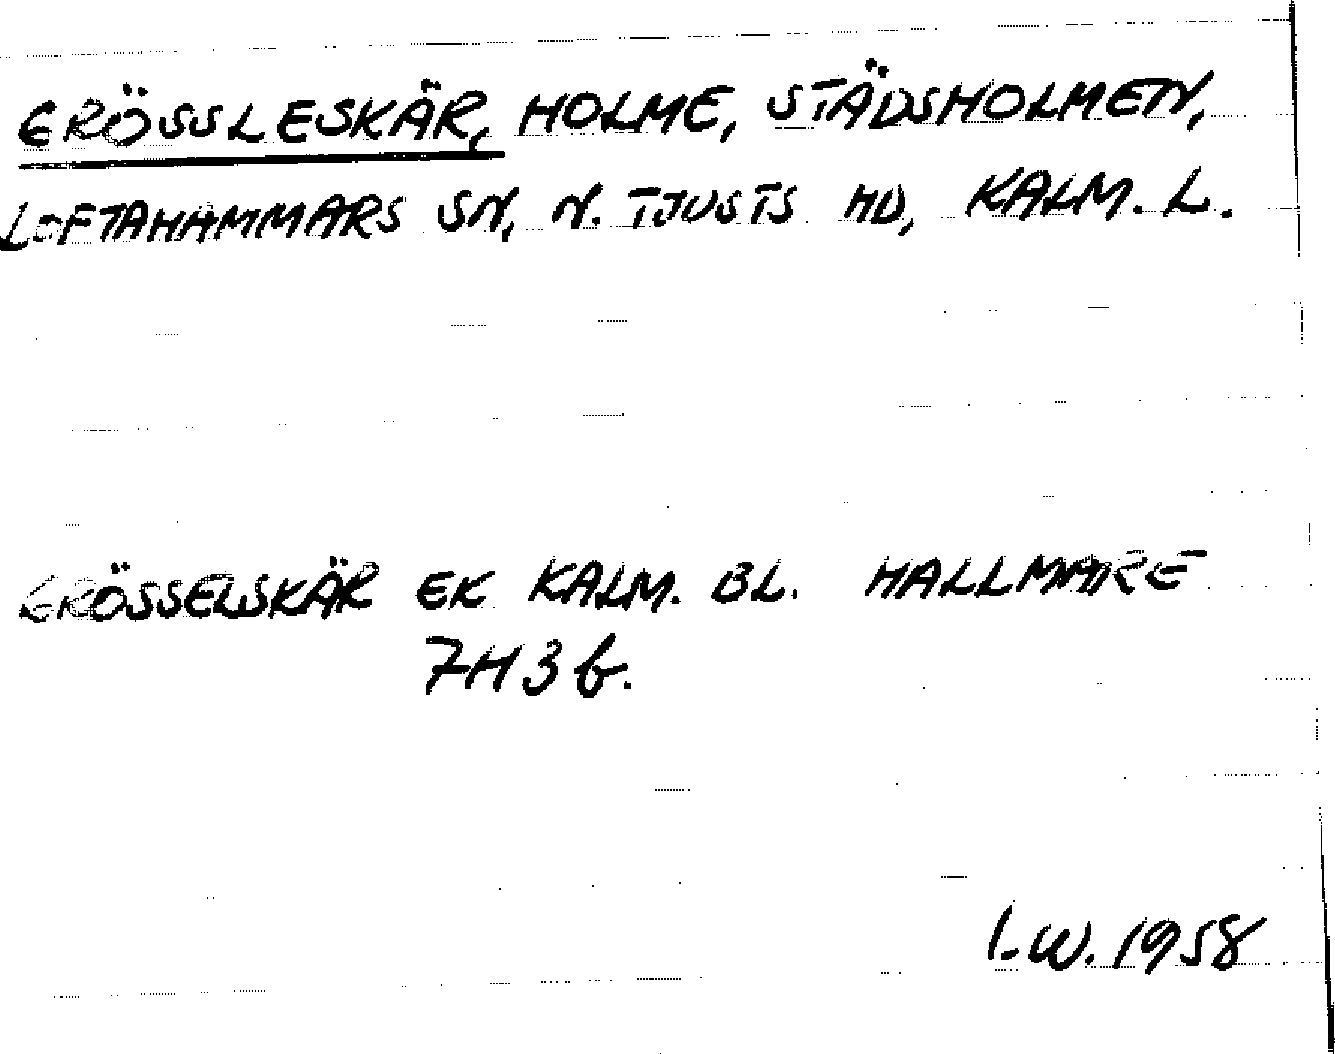 GRÖSSLESKÄR, HOLME, STÄDSHOLMEN,
LOFTAHAMMARS SN, N. TJUSTS HD, KALM. L.
GRÖSSELSKÄR EK KALM. BL. HALLMARE
7H3b.
I.W. 1958